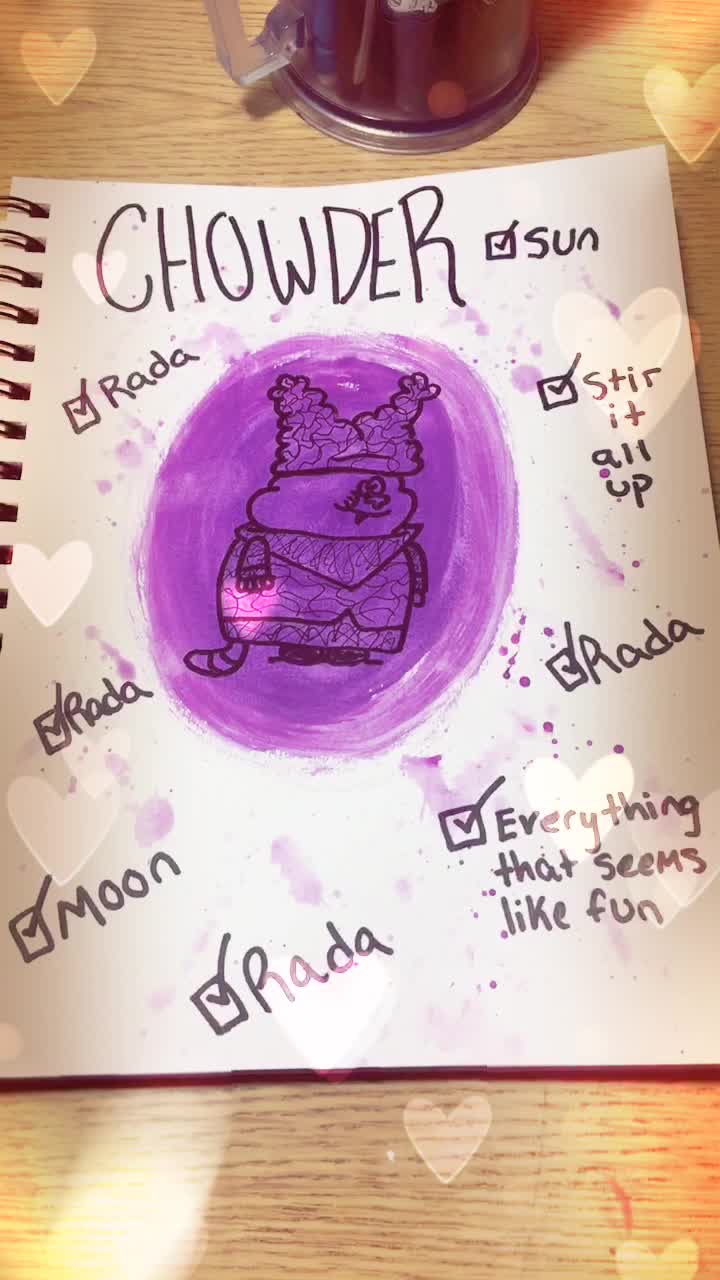 CHOWDER
☑ Sun
☑ Rada
☑ Stir
it
all
up
☑ Rada
☑ Rada
☑ Everything
that seems
like fun
☑ Moon
☑ Rada